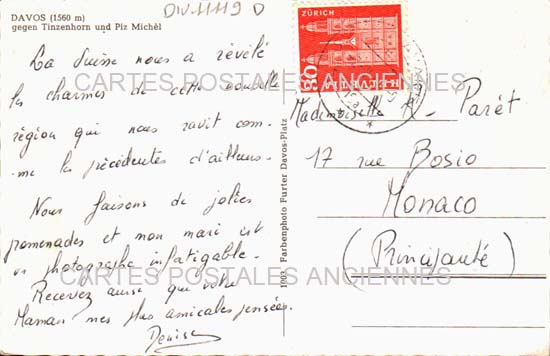 DAVOS (1560 m)
gegen Tinzenhorn und Piz Michèl
DIV-11119 D
La Suisse nous a révélé
les charmes de cette nouvelle
région qui nous ravit com-
me les précédentes d'ailleurs.
Nous faisons de jolies
promenades et mon mari est
un photographe infatigable.
Recevez ainsi que votre
Maman mes plus amicales pensées.
Denise
1003 Farbenphoto Furter Davos-Platz
ZÜRICH
80
HELVETIA
Mademoiselle Parêt
17 rue Bosio
Monaco
(Principauté)
CARTES POSTALES ANCIENNES
CARTES POSTALES ANCIENNES